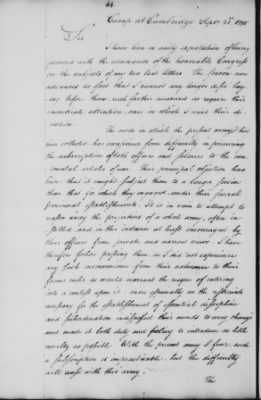 44
Camp at Cambridge Sepr 21st 1775
Sir
I have been in daily expectation of being
favored with the commands of the honorable Congress
on the subjects of my two last letters. The season now
advances so fast that I cannot any longer defer lay-
ing before them such further measures as require their
immediate attention, and in which I wait their de-
cision.
The mode in which the present army has
been collected has occasioned some difficulty in procuring
the subscription of both officers and soldiers to the con-
tinental articles of war. Their principal objection has
been that it might subject them to a longer service
than that for which they engaged under their several
provincial establishments. It is in vain to attempt to
reason away the prejudices of a whole army, often in-
stilled and in this instance at least encouraged by
their officers from private and narrow views. I have
therefore forbore pressing them as I did not experience
any such inconvenience from their adherence to their
former rules, as would warrant the risque of entering
into a contest upon it more especially as the restraints
necessary for the establishment of essential discipline
and subordination indisposed their minds to every change
and made it both duty and policy to introduce as little
novelty as possible. With the present army I fear such
a subscription is impracticable: but the difficulty
will cease with this army.
The